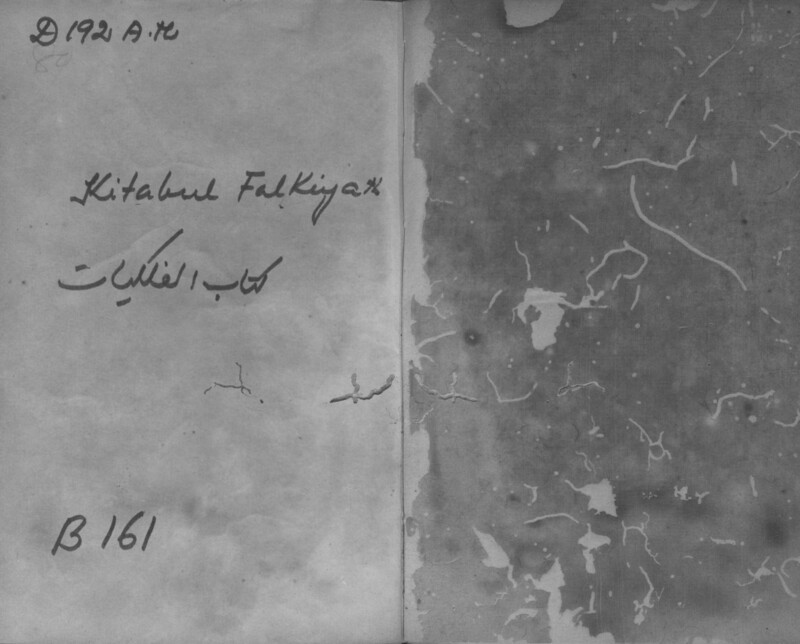 D 192 A.H
Kitabul Falkiyat
كتاب الفلكيات
B 161